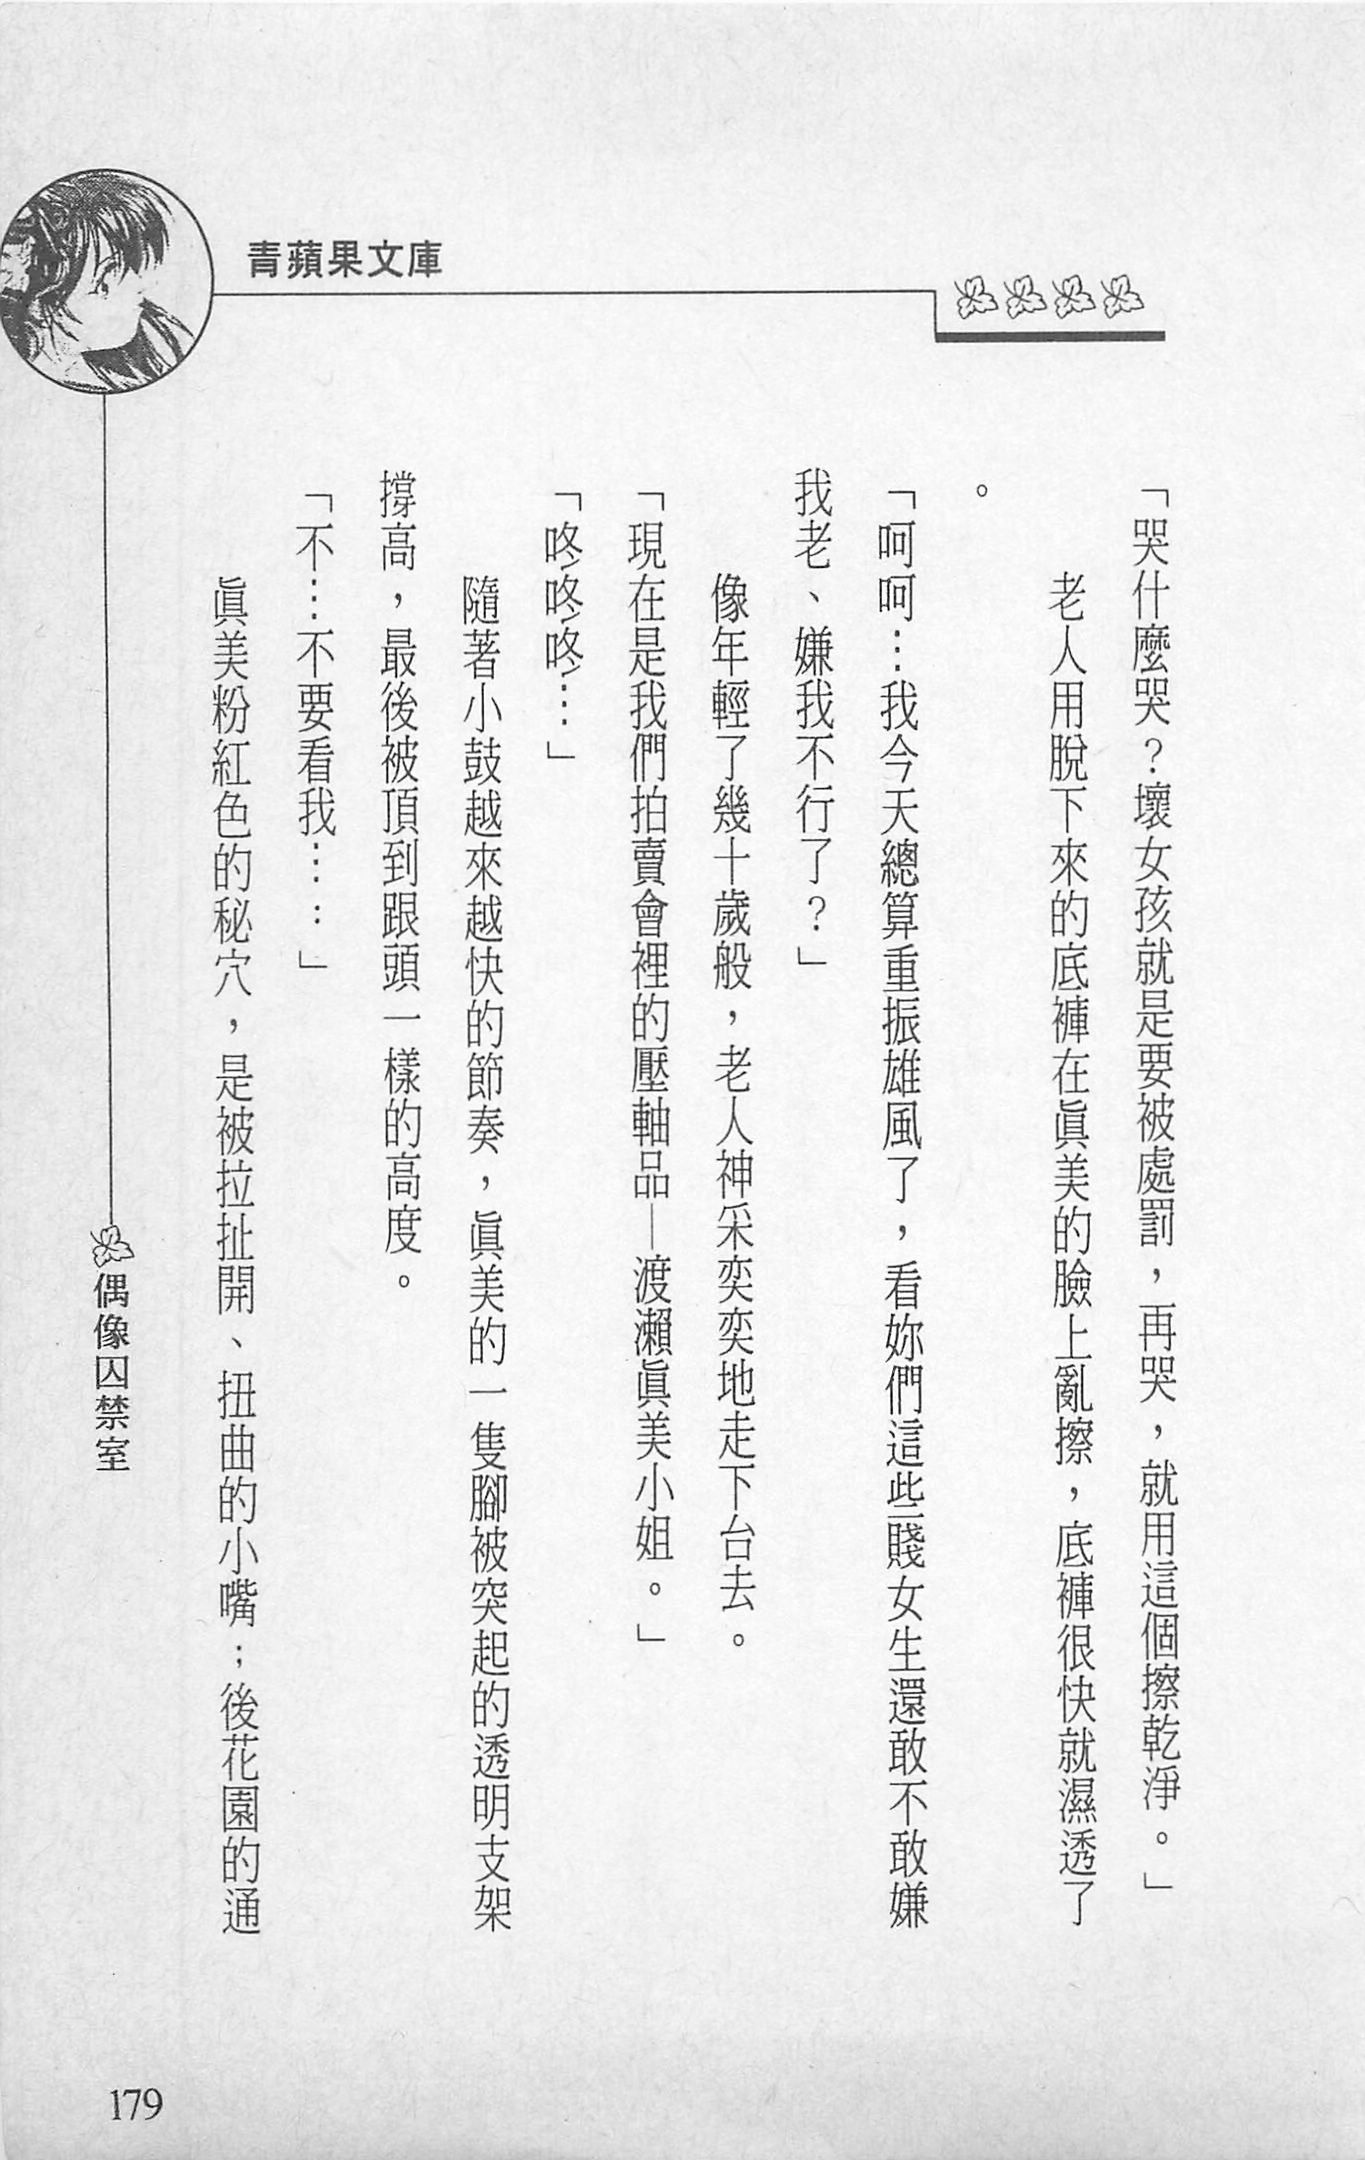 青蘋果文庫
「哭什麼哭？壞女孩就是要被處罰，再哭，就用這個擦乾淨。」
老人用脫下來的底褲在眞美的臉上亂擦，底褲很快就濕透了
。
「呵呵…我今天總算重振雄風了，看妳們這些賤女生還敢不敢嫌
我老、嫌我不行了？」
像年輕了幾十歲般，老人神采奕奕地走下台去。
「現在是我們拍賣會裡的壓軸品—渡瀨眞美小姐。」
「咚咚咚…」
隨著小鼓越來越快的節奏，眞美的一隻腳被突起的透明支架
撐高，最後被頂到跟頭一樣的高度。
「不…不要看我……」
眞美粉紅色的秘穴，是被拉扯開、扭曲的小嘴；後花園的通
偶像囚禁室
179